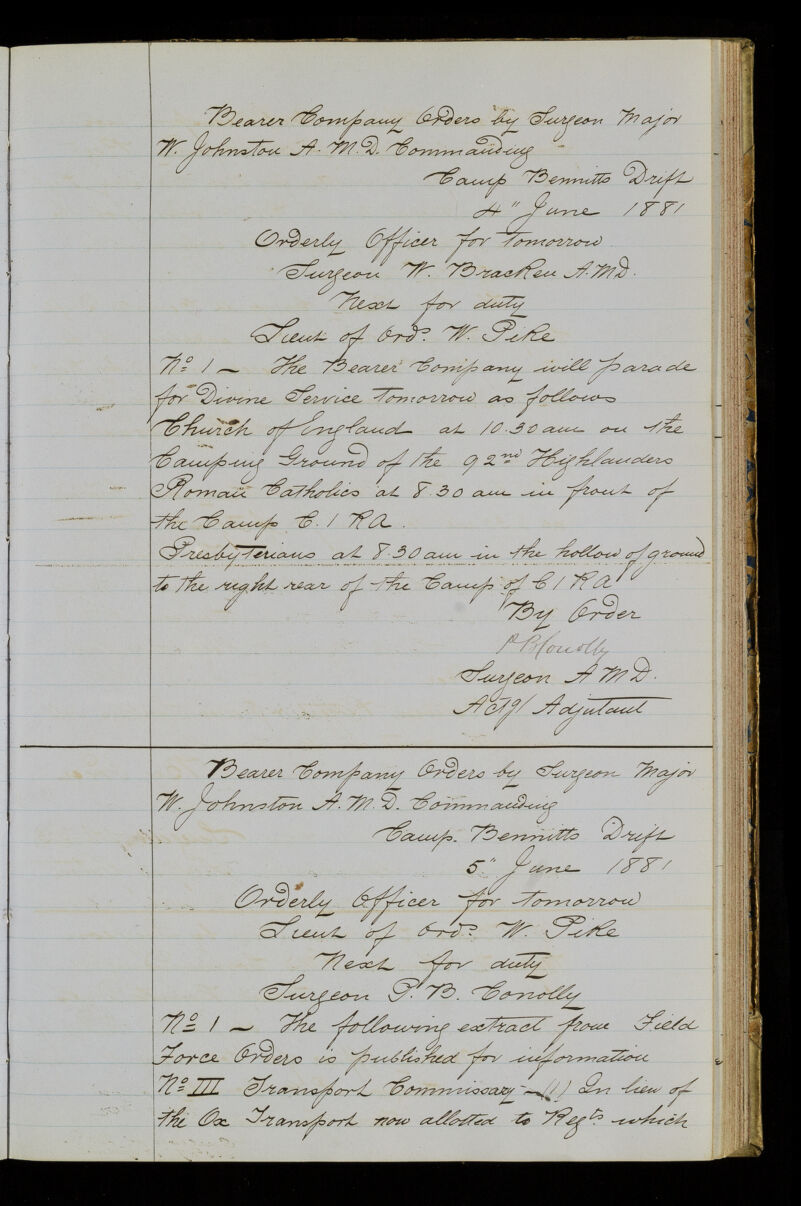 Bearer Company Orders by Surgeon Major
W. Johnston A.M.D. Commanding
Camp Bennitts Drift
4" June 1881
Orderly Officer for tomorrow
Surgeon W. Bracken A.M.D.
Next for duty
Lieut of Ord? W. Pike
No 1 – The Bearer Company will parade
for Divine Service tomorrow as follows
Church of England at 10.30 am on the
Camping Ground of the 92nd Highlanders
Roman Catholics at 8.30 am in front of
the Camp C. 1 R A.
Presbyterians at 8.30 am in the hollow of ground
to the right rear of the Camp of C 1 R A
By Order
P B Conolly
Surgeon A M D.
Actg/ Adjutant
Bearer Company Orders by Surgeon Major
W. Johnston A.M.D. Commanding
Camp. Bennitts Drift
5" June 1881
Orderly Officer for tomorrow
Lieut of Ord? W. Pike
Next for duty
Surgeon P. B. Conolly
No 1 – The following extract from Field
Force Orders is published for information
No III Transport Commissary – (1) In lieu of
the Ox Transport now allotted to Regts. which